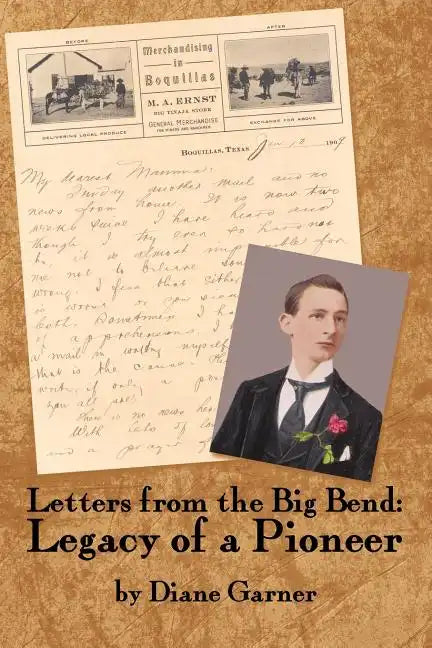 BEFORE
AFTER
Merchandising
in
Boquillas
M. A. ERNST
BIG TINAJA STORE
GENERAL MERCHANDISE
FOR MINERS AND RANCHMEN
DELIVERING LOCAL PRODUCE
EXCHANGE FOR ABOVE
BOQUILLAS, TEXAS, Jan 10 1909
My dearest Mamma:
Sunday another mail and no
news from home. It is now two
weeks since I have heard and
though I try ever so hard not
to, it is almost impossible for
me not to believe
wrong. I fear that either
is wrong or you
both. Sometimes I
of apprehensions. I
a mail in
that is the cause.
write, if only a
you all are.
There is no news
With lots of
and a prayer
Letters from the Big Bend:
Legacy of a Pioneer
by Diane Garner